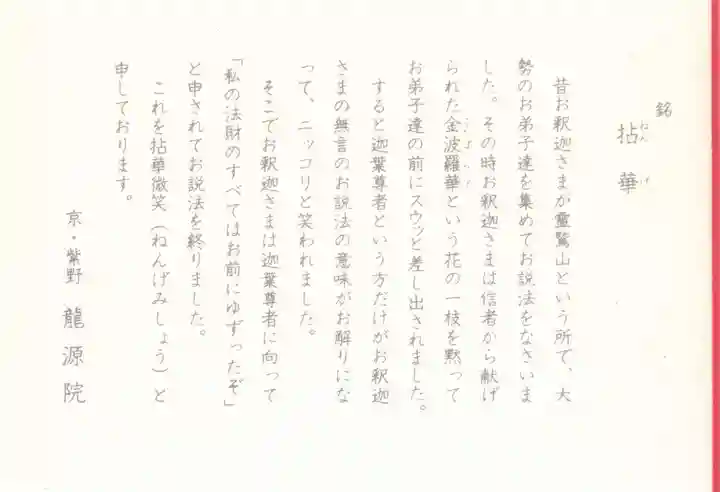 銘
拈華
ねんげ
昔お釈迦さまが靈鷲山という所で、大
勢のお弟子達を集めてお説法をなさいま
した。その時お釈迦さまは信者から献げ
られた金波羅華という花の一枝を黙って
お弟子達の前にスウッと差し出されました。
すると迦葉尊者という方だけがお釈迦
さまの無言のお説法の意味がお解りにな
って、ニッコリと笑われました。
そこでお釈迦さまは迦葉尊者に向って
「私の法財のすべてはお前にゆずったぞ」
と申されてお説法を終りました。
これを拈華微笑(ねんげみしょう)と
申しております。
京・紫野 龍源院